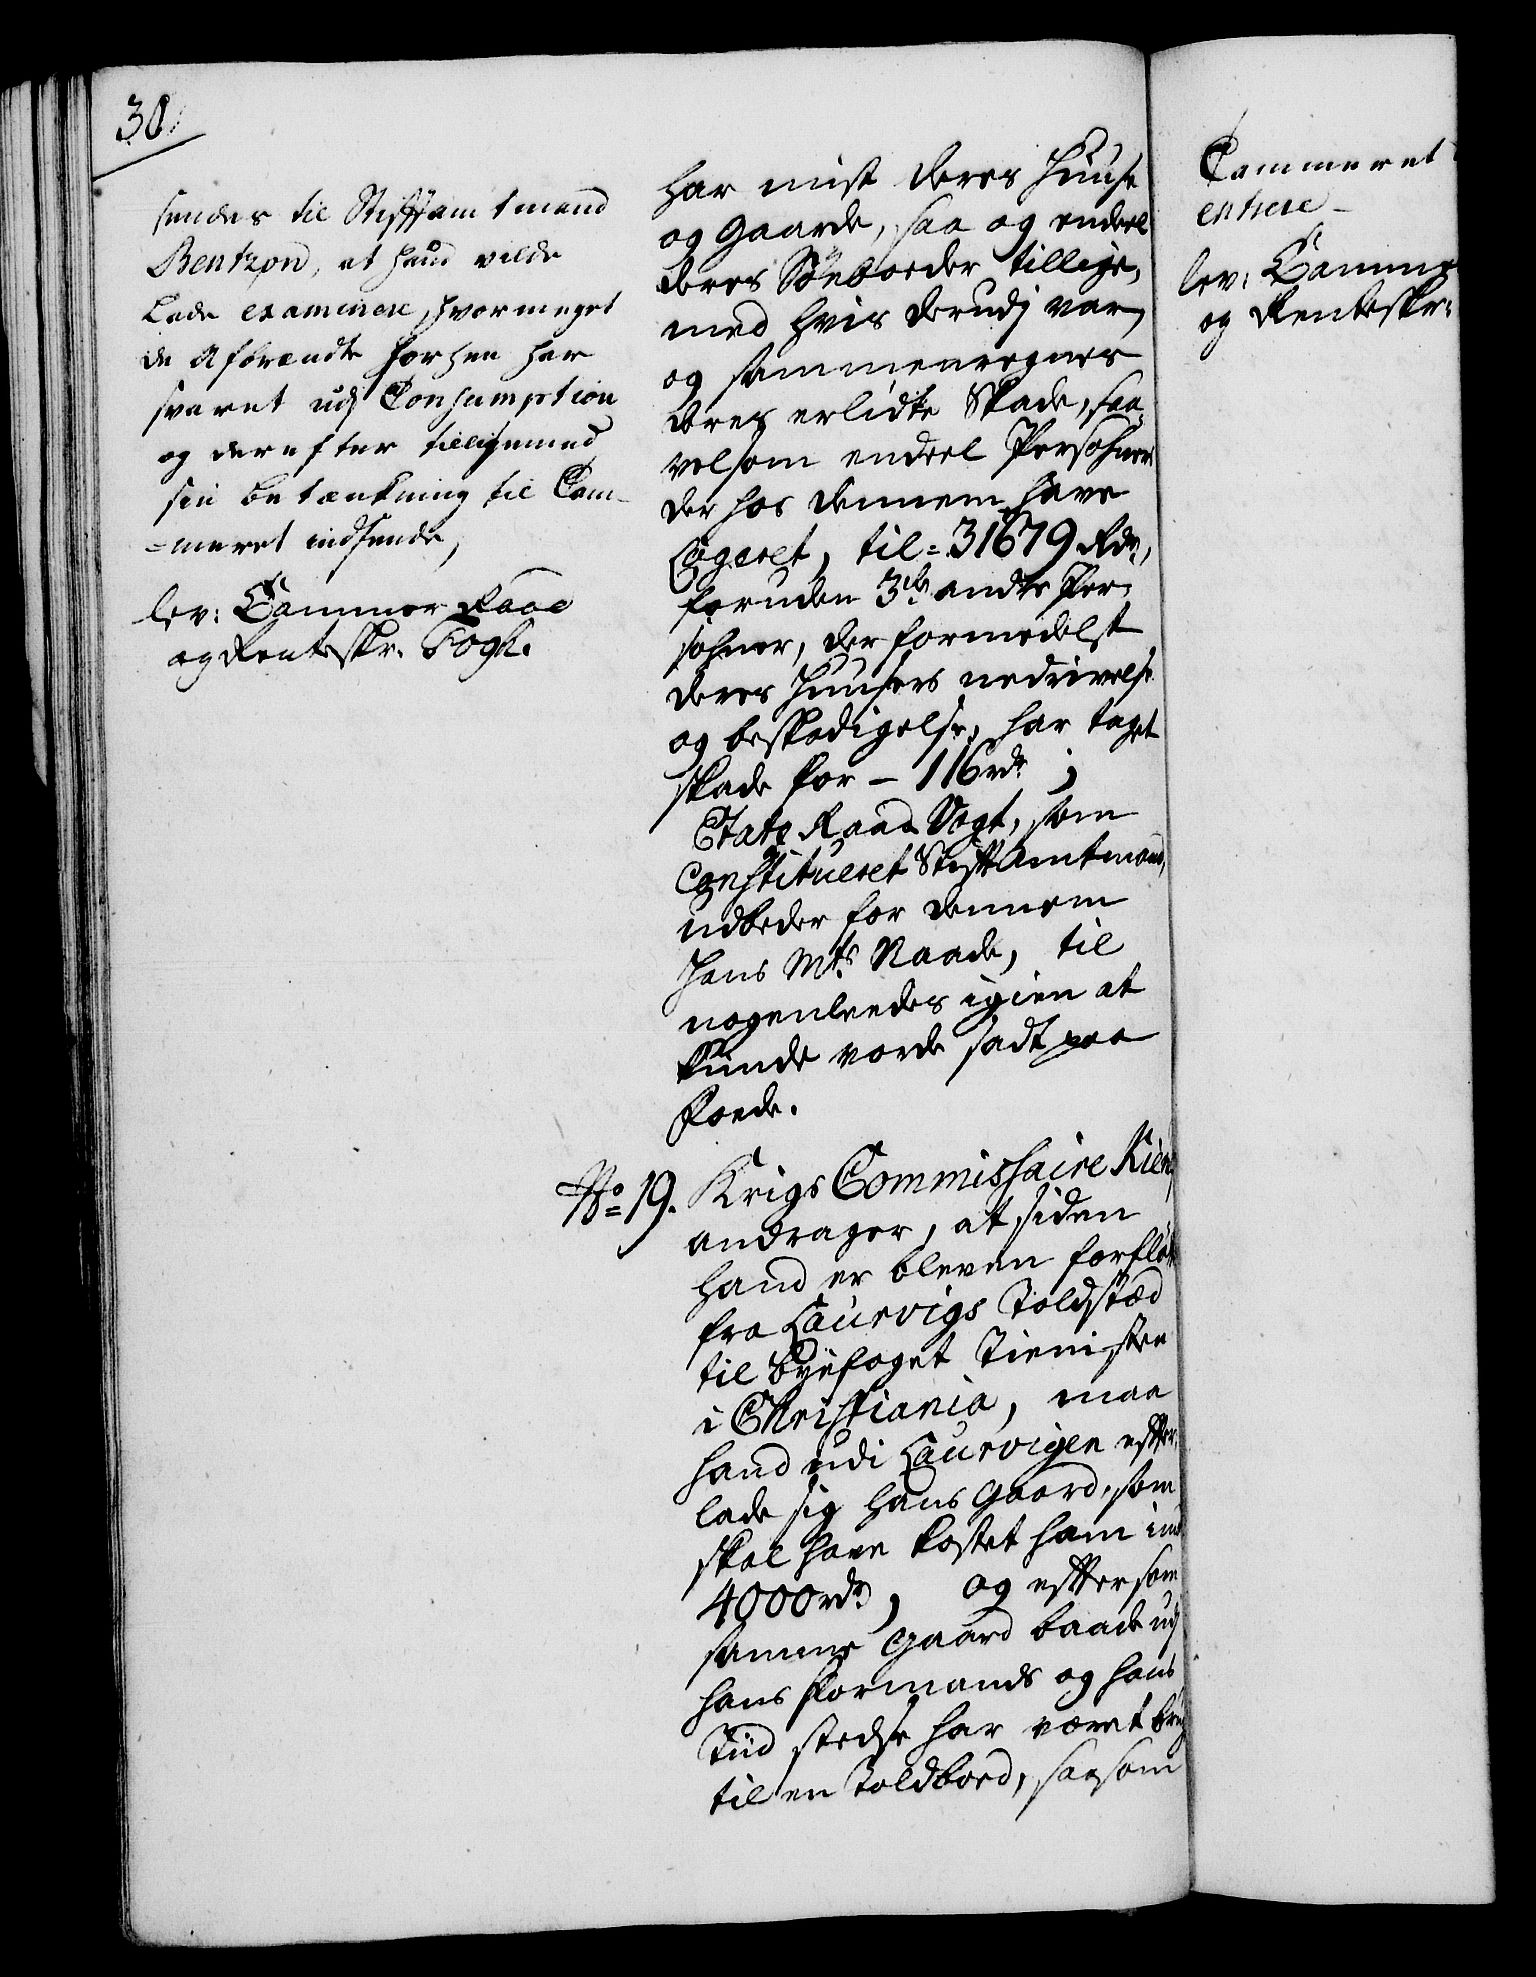 30
sendes til Stiftamtmand
Bentzon, at hand vilde
Lade examinere, hvormeget
de Afbrændte forhen har
svaret udj Consumption
og derefter tilligemed
sin betænkning til Cam-
=meret indsende,
lev: Cammer Raad
og Renteskr. Fogh.
har mist deres Huuse
og Gaarde, saa og endeel
deres Söeboeder tillige,
med hvis derudj var,
og sammenregner
deres erlidte Skade, saa
velsom endeel Persohner
der hos dennem have
Logeret, til = 31679 Rdr,
foruden 3de andre Per-
sohner, der formedelst
deres Huusers nedrivelse
og beskadigelse, har taget
skade for - 116 rdr;
Etats Raad Vogt, som
Constitueret Stiftamtmand,
udbeder for dennem
Hans Mts Naade, til
nogenleedes igien at
kunde vorde sadt paa
foede.
No 19. Krigs Commissaire
andrager, at siden
hand er bleven forflöt
fra Laurvigs Toldstæd
til Byefoget Tienisten
i Christiania, maa
hand udi Laurvigen effter-
lade sig hans Gaard, som
skal have kostet ham ind
4000 rdr, og effter som
samme Gaard baade udj
hans Formands og hans
Tiid stedse har været brug
til en Toldboed, saasom
Cammeret
lev: Camme
og Renteskr: